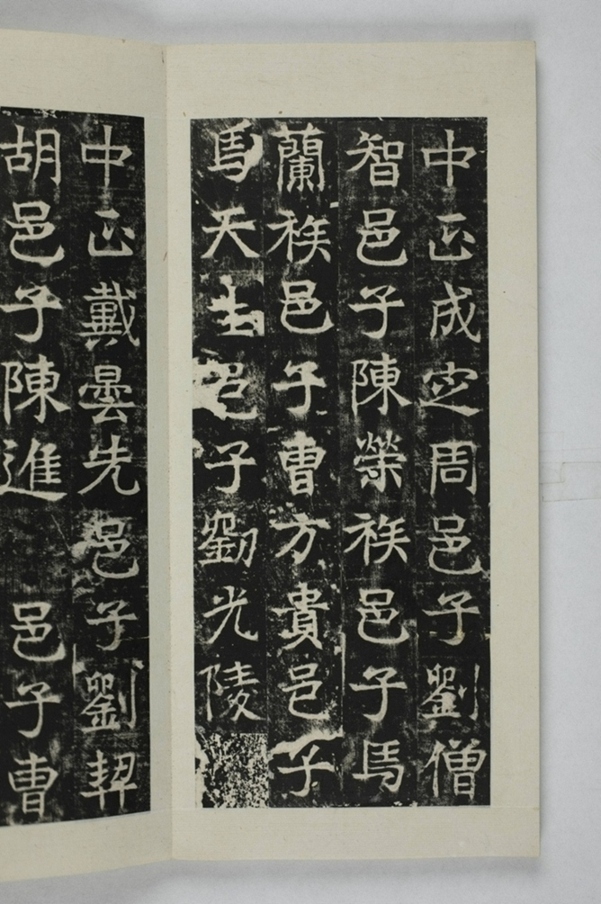 中正成定周邑子劉僧
智邑子陳榮族邑子馬
蘭族邑子曹方貴邑子
馬天生邑子劉光陵
中正戴曇先邑子劉契
胡邑子陳進邑子曹